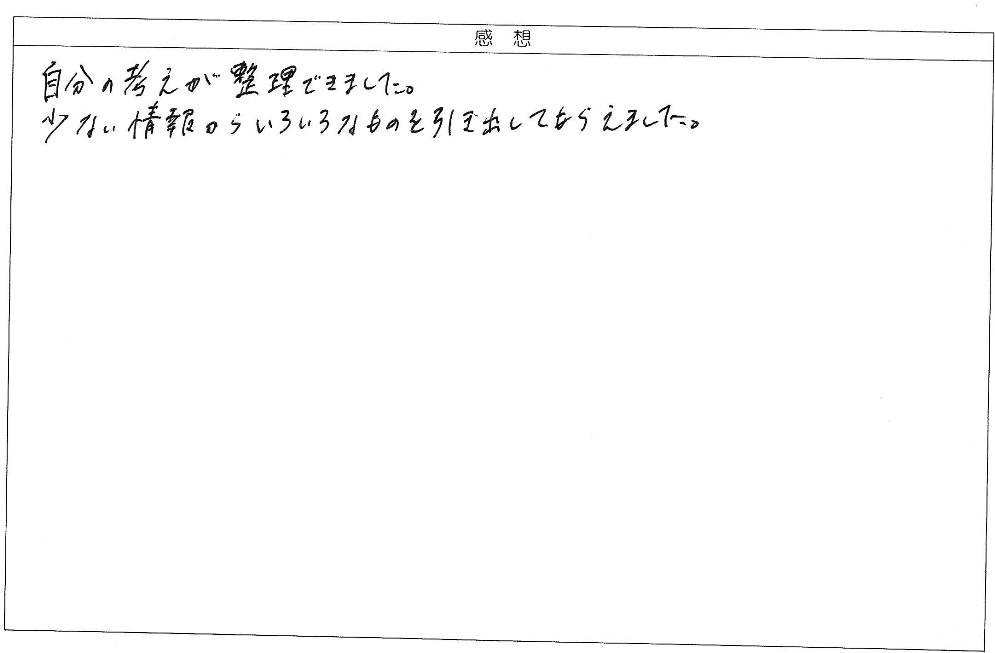 感想
自分の考えが整理できました。
少ない情報からいろいろなものを引き出してもらえました。